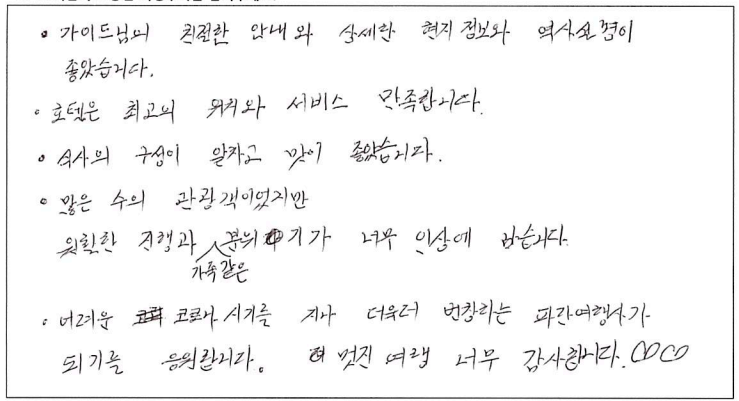 • 가이드님의 친절한 안내와 상세한 현지 정보와 역사설명이
좋았습니다.
• 호텔은 최고의 위치와 서비스 만족합니다.
• 식사의 구성이 알차고 맛이 좋았습니다.
• 많은 수의 관광객이었지만
원활한 진행과 가족같은 분위기가 너무 인상에 남습니다.
• 어려운 코로나 시기를 지나 더욱더 번창하는 파란여행사가
되기를 응원합니다. 멋진 여행 너무 감사합니다.